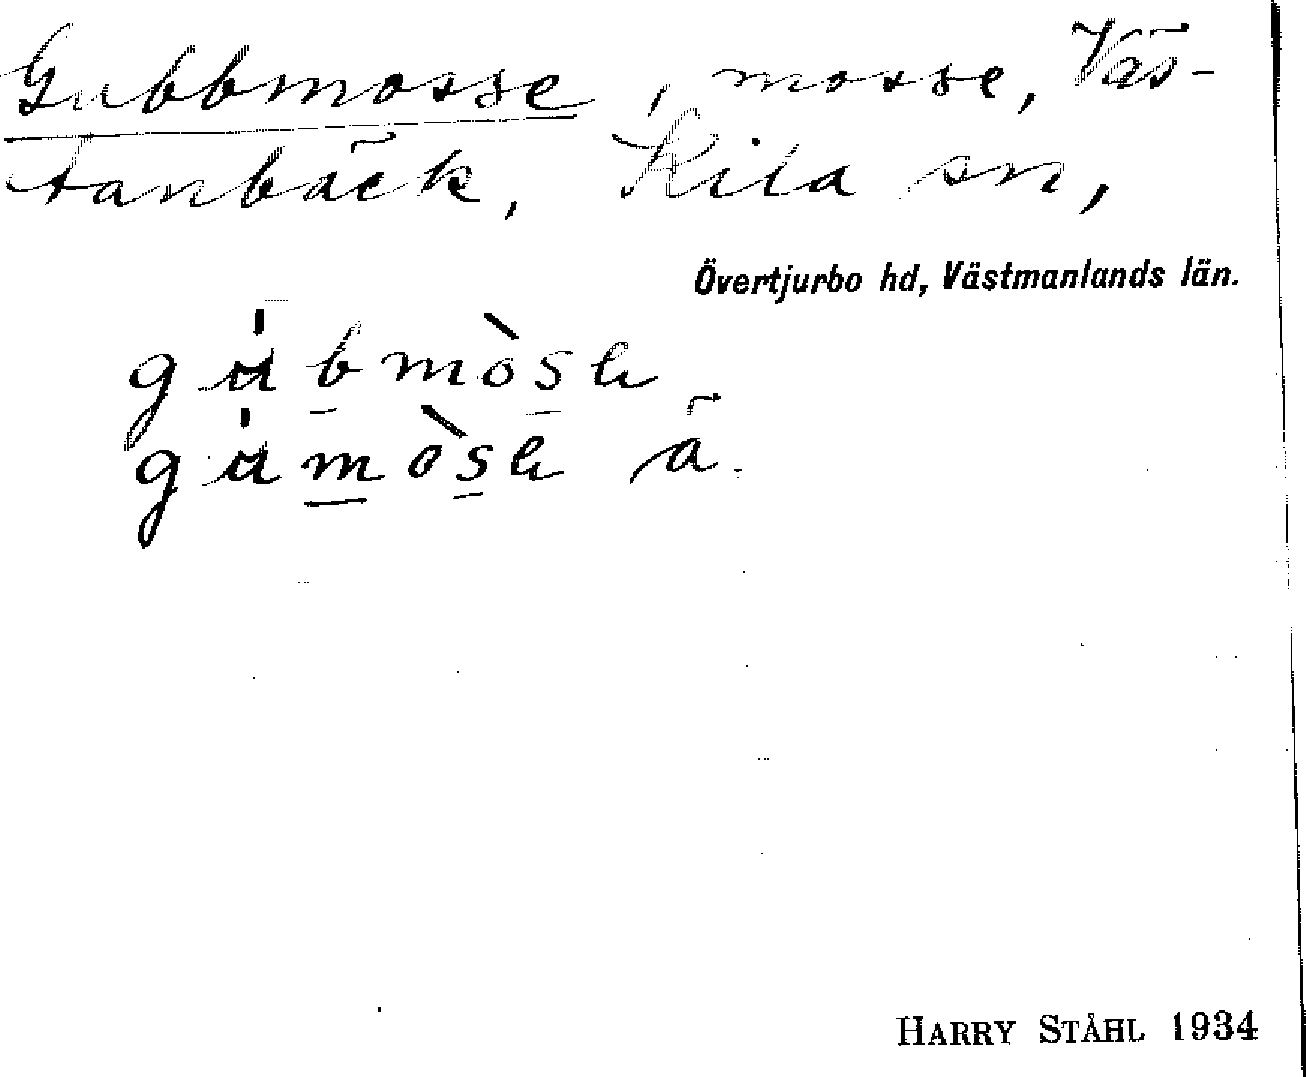 Gubbmosse, mosse, Väs-
tanbäck, Kila sn,
Övertjurbo hd, Västmanlands län.
HARRY STÅHL 1934